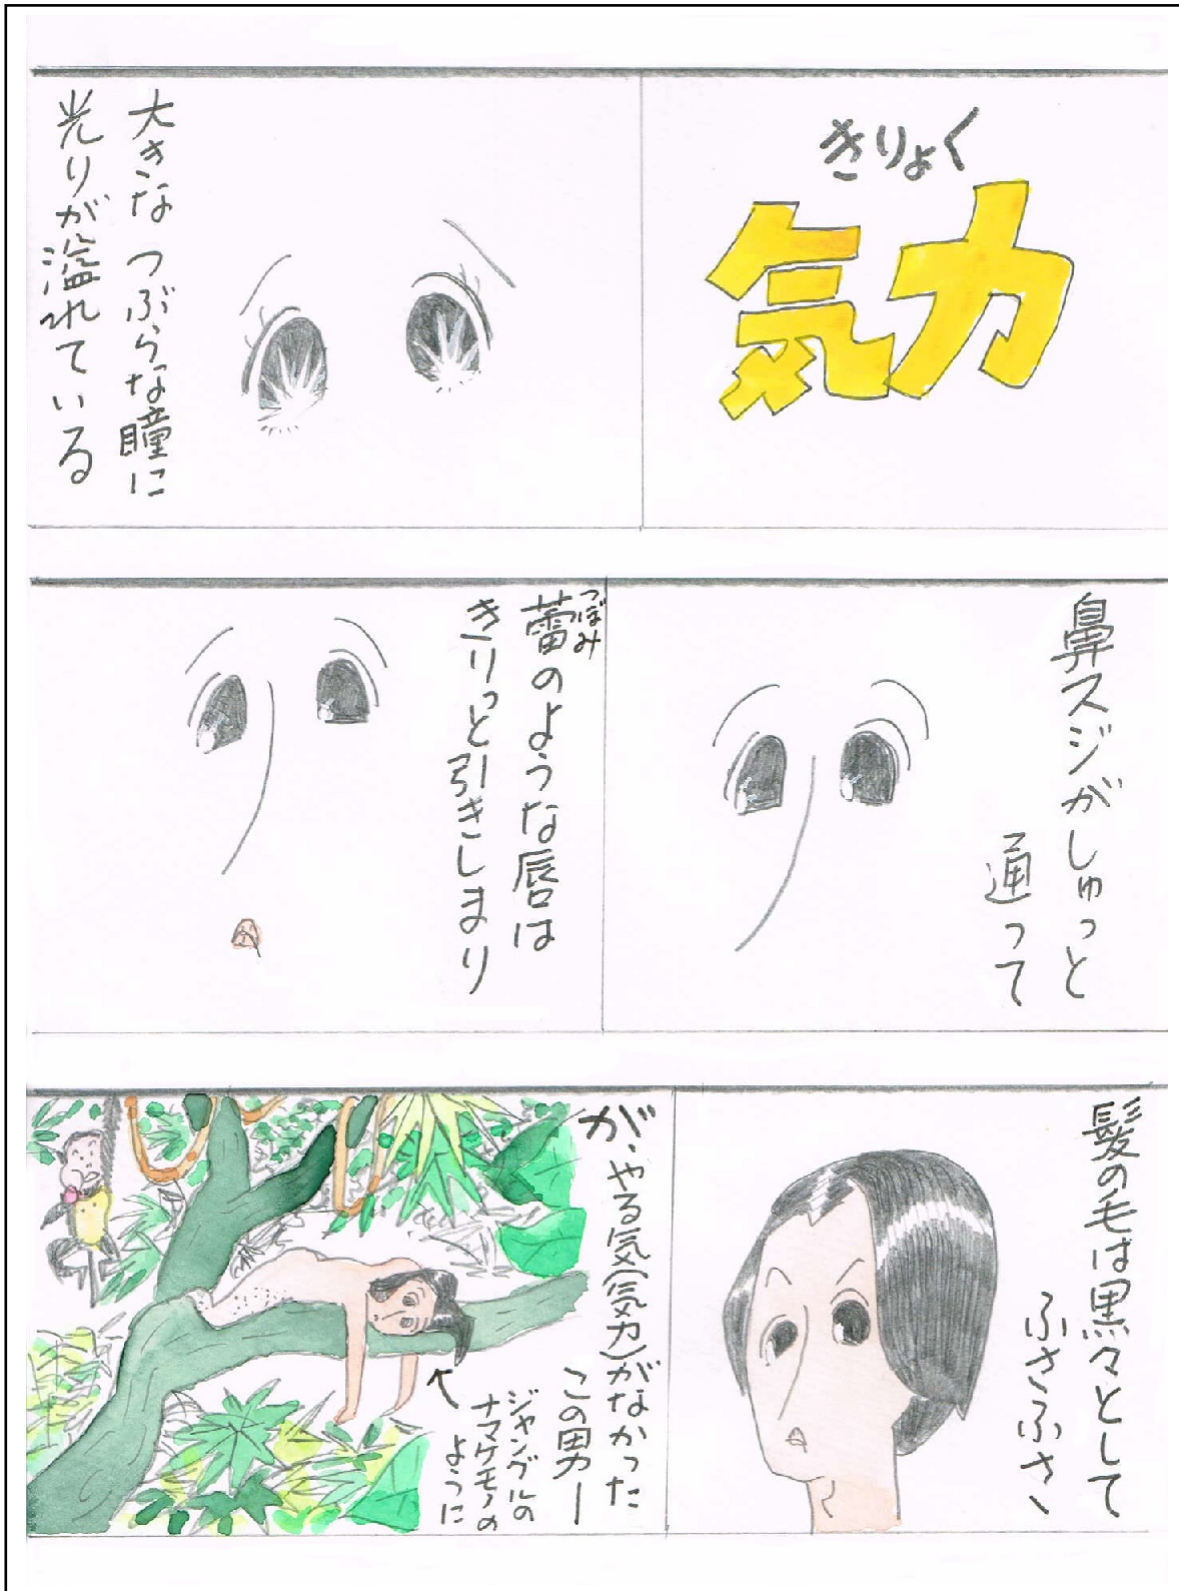 きりょく
気力
大きなつぶらな瞳に
光りが溢れている
鼻スジがしゅっと
通って
つぼみ
蕾のような唇は
きりっと引きしまり
髪の毛は黒々として
ふさふさ
が、やる気(気力)がなかった
この男ー
ジャングルの
ナマケモノの
ように